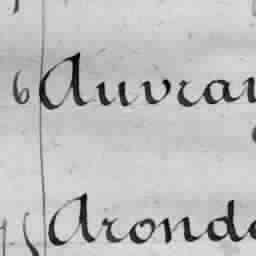 6 Auvra
Aronde